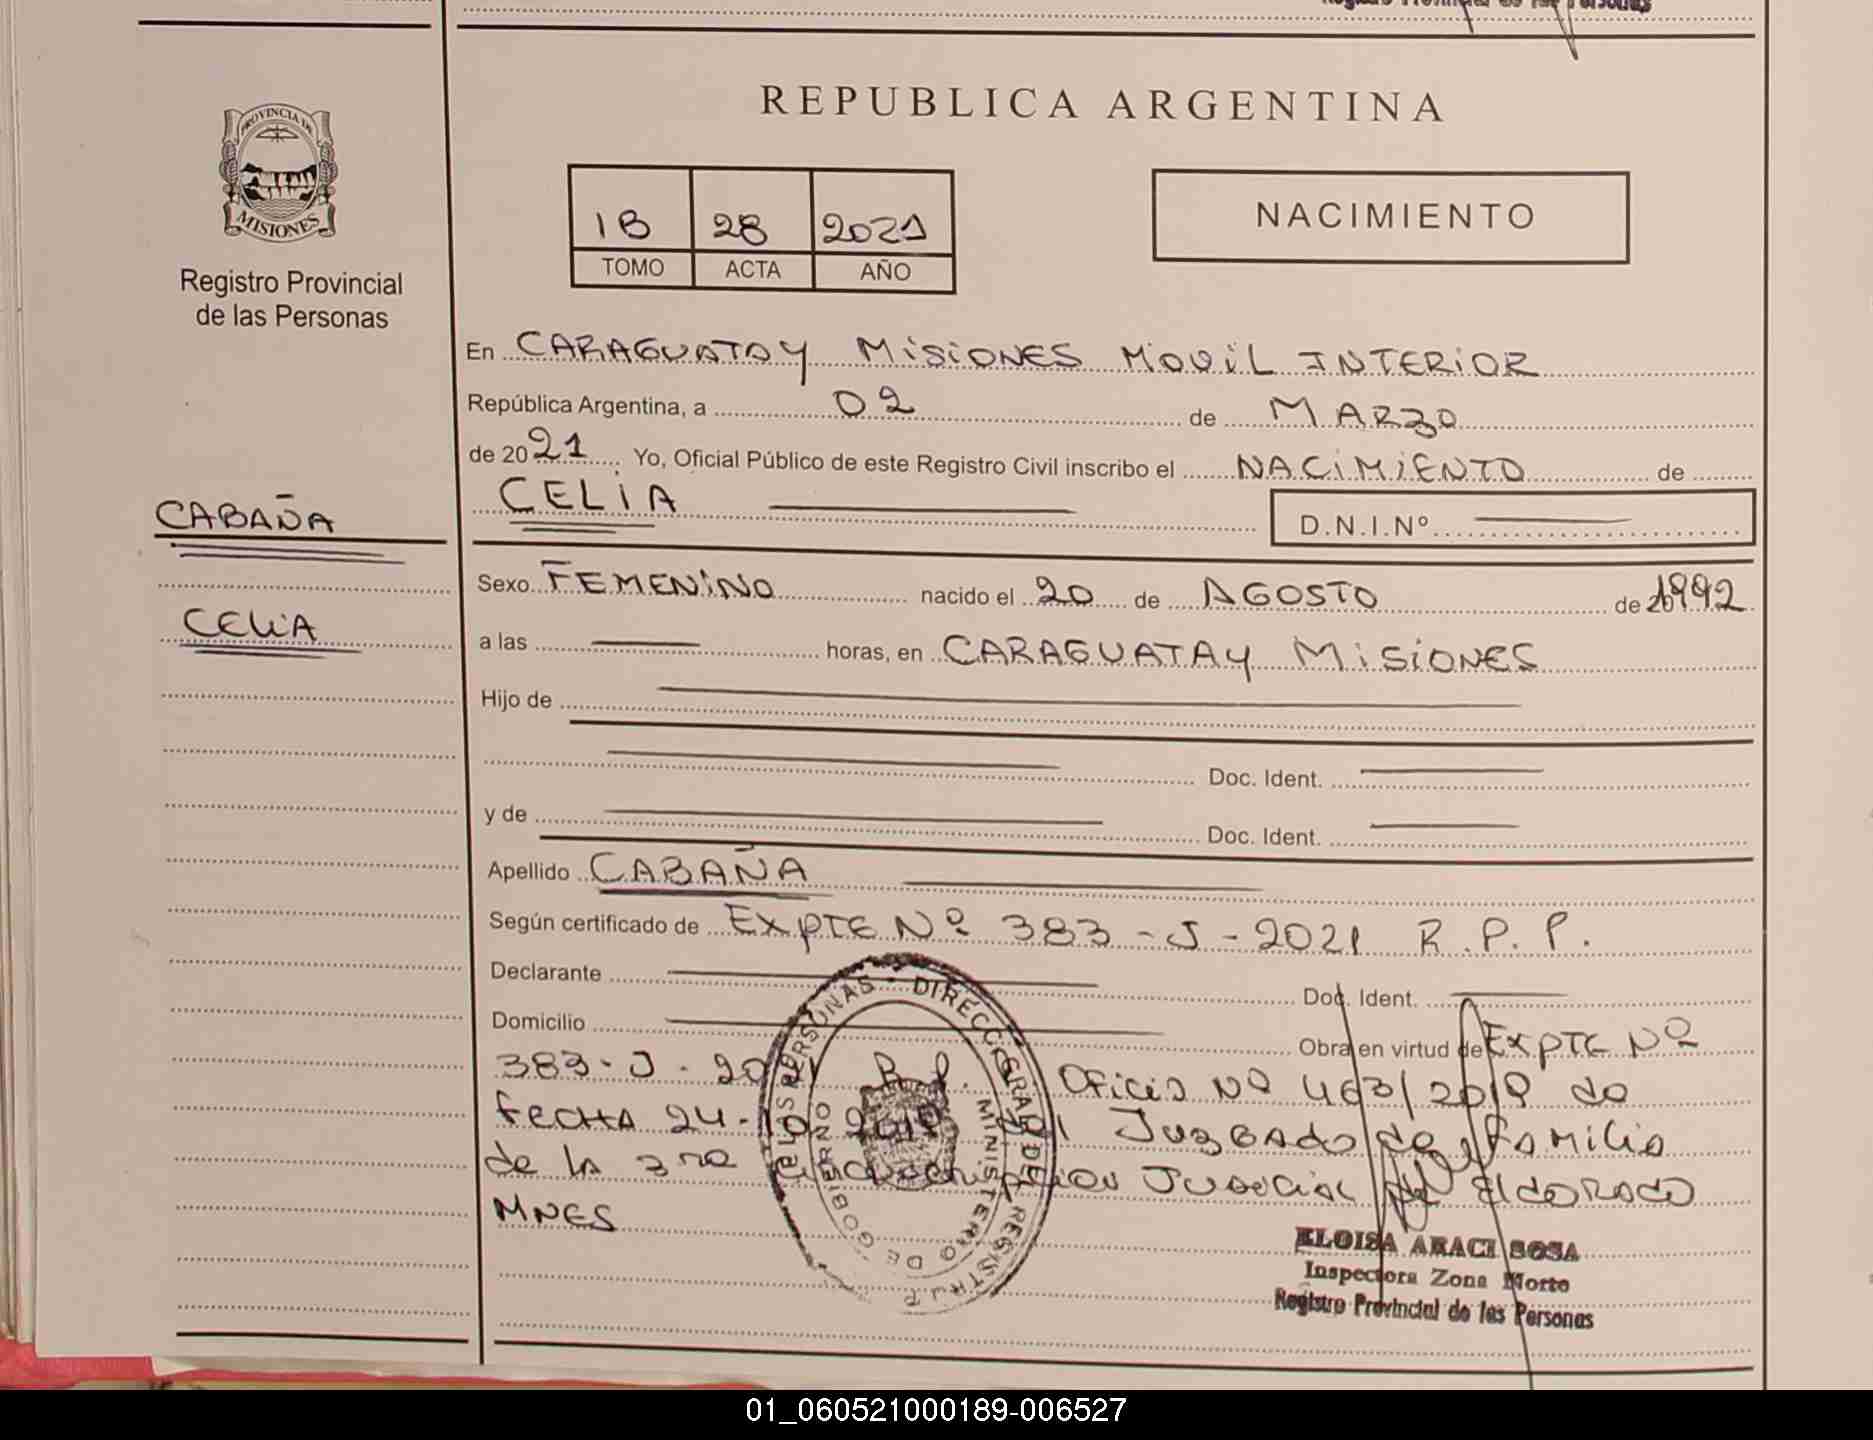 Registro Provincial de las Personas
REPUBLICA ARGENTINA
PROVINCIA DE
MISIONES
Registro Provincial
de las Personas
1B 28 2021
TOMO ACTA AÑO
NACIMIENTO
En CARAGUATAY MISIONES MOVIL INTERIOR
República Argentina, a 02 de MARZO
de 2021 Yo, Oficial Público de este Registro Civil inscribo el NACIMIENTO de
CELIA
D.N.I.Nº
CABAÑA
CELIA
Sexo FEMENINO nacido el 20 de AGOSTO de 1992
a las horas, en CARAGUATAY MISIONES
Hijo de
Doc. Ident.
y de
Doc. Ident.
Apellido CABAÑA
Según certificado de EXPTE Nº 383-J-2021 R.P.P.
Declarante Doc. Ident.
Domicilio Obra en virtud de EXPTE Nº
383-J-2021 R.P. Oficio Nº 463/2019 de
FECHA 24-10-2019 del JUZGADO de FAMILIA
de la 3ra Circunscripcion JUDICIAL de ELDORADO
MNES
DIRECC. GRAL. DEL REGISTRO P. DE LAS PERSONAS
MINISTERIO DE GOBIERNO
ELOISA ARACI SOSA
Inspectora Zona Norte
Registro Provincial de las Personas
01_060521000189-006527